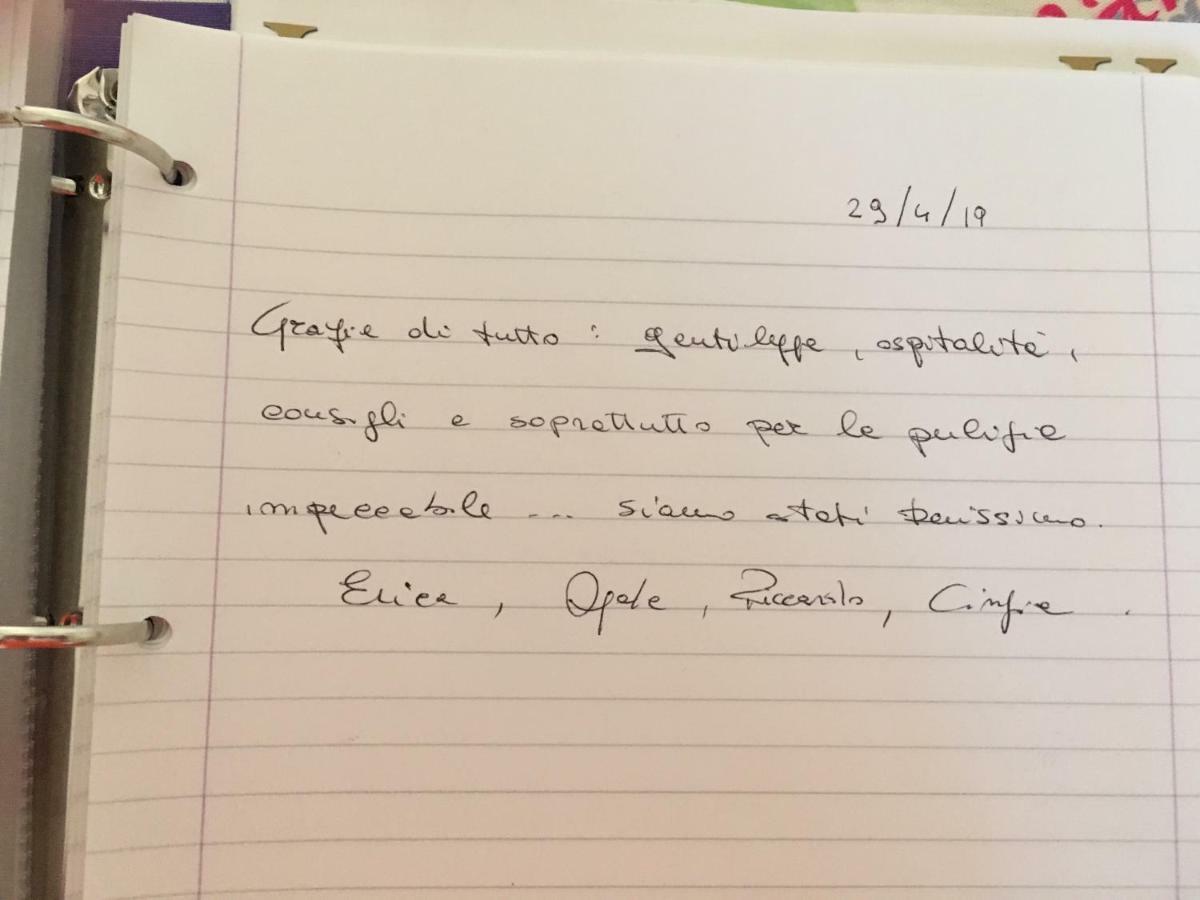 29/4/19
Grazie di tutto: gentilezze, ospitalità,
consigli e soprattutto per le pulizie
impeccabile ... siamo stati benissimo.
Erica, Riccardo, Cinzia.